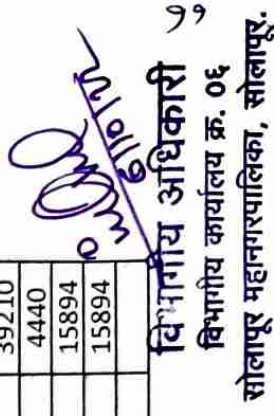 39210
4440
15894
15894
विभागीय अधिकारी
विभागीय कार्यालय क्र. ०६
सोलापूर महानगरपालिका, सोलापूर.